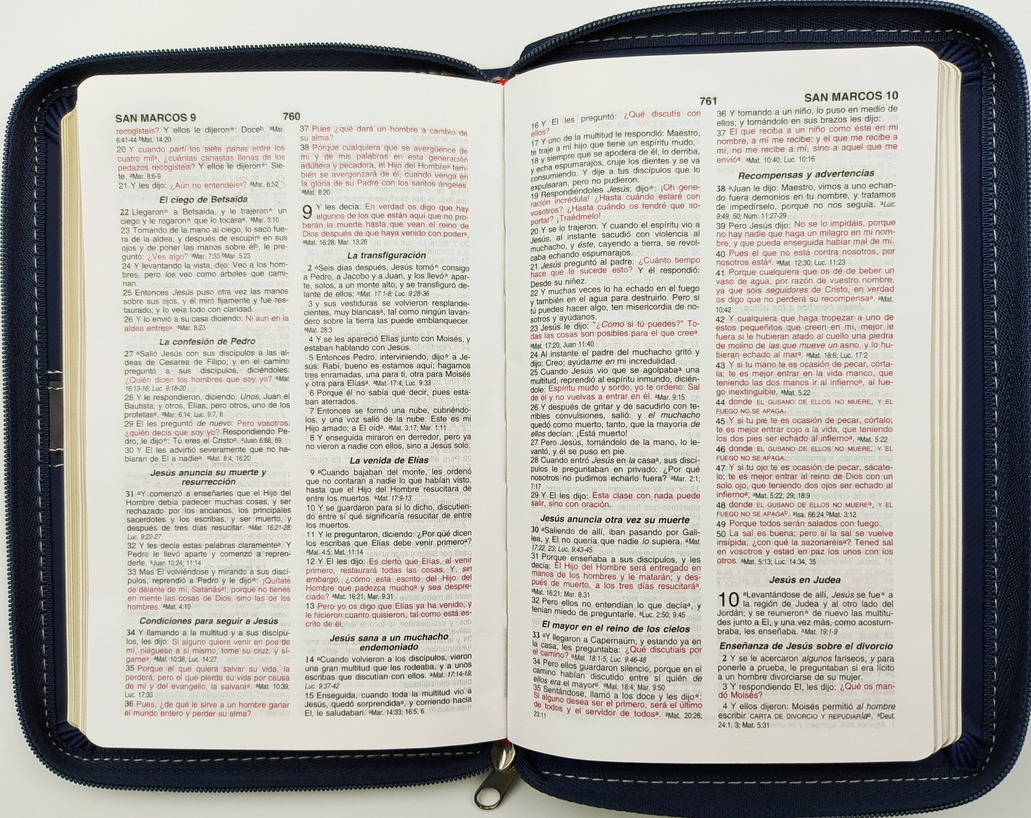 SAN MARCOS 9
760
recogisteis? Y ellos le dijeron*: Doceᵇ. ᵃMar.
6:41-44 ᵇMat. 14:20
20 Y cuando partí los siete panes entre los
cuatro milᵃ, ¿cuántas canastas llenas de los
pedazos recogisteis? Y ellos le dijeron*: Sie-
te. ᵃMar. 8:6-9
21 Y les dijo: ¿Aún no entendéisᵃ? ᵃMar. 6:52
El ciego de Betsaida
22 Llegaron* a Betsaida, y le trajeron* un
ciego y le rogaron* que lo tocaraᵃ. ᵃMar. 3:10
23 Tomando de la mano al ciego, lo sacó fue-
ra de la aldea, y después de escupirᵃ en sus
ojos y de poner las manos sobre élᵇ, le pre-
guntó: ¿Ves algo? ᵃMar. 7:33 ᵇMar. 5:23
24 Y levantando la vista, dijo: Veo a los hom-
bres, pero los veo como árboles que cami-
nan.
25 Entonces Jesús puso otra vez las manos
sobre sus ojos, y él miró fijamente y fue res-
taurado; y lo veía todo con claridad.
26 Y lo envió a su casa diciendo: Ni aun en la
aldea entresᵃ. ᵃMar. 8:23
La confesión de Pedro
27 ᵃSalió Jesús con sus discípulos a las al-
deas de Cesarea de Filipo; y en el camino
preguntó a sus discípulos, diciéndoles:
¿Quién dicen los hombres que soy yo? ᵃMat.
16:13-16; Luc. 9:18-20
28 Y le respondieron, diciendo: Unos, Juan el
Bautista; y otros, Elías; pero otros, uno de los
profetasᵃ. ᵃMar. 6:14; Luc. 9:7, 8
29 El les preguntó de nuevo: Pero vosotros,
¿quién decís que soy yo? Respondiendo Pe-
dro, le dijo*: Tú eres el Cristoᵃ. ᵃJuan 6:68, 69
30 Y El les advirtió severamente que no ha-
blaran de El a nadieᵃ. ᵃMat. 8:4; 16:20
Jesús anuncia su muerte y
resurrección
31 ᵃY comenzó a enseñarles que el Hijo del
Hombre debía padecer muchas cosas, y ser
rechazado por los ancianos, los principales
sacerdotes y los escribas, y ser muerto, y
después de tres días resucitar. ᵃMat. 16:21-28;
Luc. 9:22-27
32 Y les decía estas palabras claramenteᵃ. Y
Pedro le llevó aparte y comenzó a repren-
derle. ᵃJuan 10:24; 11:14
33 Mas El volviéndose y mirando a sus discí-
pulos, reprendió a Pedro y le dijo*: ¡Quítate
de delante de mí, Satanásᵃ!, porque no tienes
en mente las cosas de Dios, sino las de los
hombres. ᵃMat. 4:10
Condiciones para seguir a Jesús
34 Y llamando a la multitud y a sus discípu-
los, les dijo: Si alguno quiere venir en pos de
mí, niéguese a sí mismo, tome su cruz, y sí-
gameᵃ. ᵃMat. 10:38; Luc. 14:27
35 Porque el que quiera salvar su vida, la
perderá; pero el que pierda su vida por causa
de mí y del evangelio, la salvaráᵃ. ᵃMat. 10:39;
Luc. 17:33
36 Pues, ¿de qué le sirve a un hombre ganar
el mundo entero y perder su alma?
37 Pues ¿qué dará un hombre a cambio de
su alma?
38 Porque cualquiera que se avergüence de
mí y de mis palabras en esta generación
adúltera y pecadora, el Hijo del Hombreᵃ tam-
bién se avergonzará de él, cuando venga en
la gloria de su Padre con los santos ángeles.
ᵃMat. 8:20
9 Y les decía: En verdad os digo que hay
algunos de los que están aquí que no pro-
barán la muerte hasta que vean el reino de
Dios después de que haya venido con poderᵃ.
ᵃMat. 16:28; Mar. 13:26
La transfiguración
2 ᵃSeis días después, Jesús tomó* consigo
a Pedro, a Jacobo y a Juan, y los llevó* apar-
te, solos, a un monte alto; y se transfiguró de-
lante de ellos; ᵃMat. 17:1-8; Luc. 9:28-36
3 y sus vestiduras se volvieron resplande-
cientes, muy blancasᵃ, tal como ningún lavan-
dero sobre la tierra las puede emblanquecer.
ᵃMat. 28:3
4 Y se les apareció Elías junto con Moisés, y
estaban hablando con Jesús.
5 Entonces Pedro, interviniendo, dijo* a Je-
sús: Rabí, bueno es estarnos aquí; hagamos
tres enramadas, una para ti, otra para Moisés
y otra para Elíasᵃ. ᵃMat. 17:4; Luc. 9:33
6 Porque él no sabía qué decir, pues esta-
ban aterrados.
7 Entonces se formó una nube, cubriéndo-
los, y una voz salió de la nube: Este es mi
Hijo amado; a El oídᵃ. ᵃMat. 3:17; Mar. 1:11
8 Y enseguida miraron en derredor, pero ya
no vieron a nadie con ellos, sino a Jesús solo.
La venida de Elías
9 ᵃCuando bajaban del monte, les ordenó
que no contaran a nadie lo que habían visto,
hasta que el Hijo del Hombre resucitara de
entre los muertos. ᵃMat. 17:9-13
10 Y se guardaron para sí lo dicho, discutien-
do entre sí qué significaría resucitar de entre
los muertos.
11 Y le preguntaron, diciendo: ¿Por qué dicen
los escribas que Elías debe venir primeroᵃ?
ᵃMal. 4:5; Mat. 11:14
12 Y El les dijo: Es cierto que Elías, al venir
primero, restaurará todas las cosas. Y, sin
embargo, ¿cómo está escrito del Hijo del
Hombre que padezca muchoᵃ y sea despre-
ciado? ᵃMat. 16:21; Mar. 9:31
13 Pero yo os digo que Elías ya ha venido, y
le hicieron cuanto quisieron, tal como está es-
crito de él.
Jesús sana a un muchacho
endemoniado
14 ᵃCuando volvieron a los discípulos, vieron
una gran multitud que les rodeaba, y a unos
escribas que discutían con ellos. ᵃMat. 17:14-19;
Luc. 9:37-42
15 Enseguida, cuando toda la multitud vio a
Jesús, quedó sorprendidaᵃ, y corriendo hacia
El, le saludaban. ᵃMar. 14:33; 16:5, 6
761
SAN MARCOS 10
16 Y El les preguntó: ¿Qué discutís con
ellos?
17 Y uno de la multitud le respondió: Maestro,
te traje a mi hijo que tiene un espíritu mudo,
18 y siempre que se apodera de él, lo derriba,
y echa espumarajos, cruje los dientes y se va
consumiendo. Y dije a tus discípulos que lo
expulsaran, pero no pudieron.
19 Respondiéndoles Jesús, dijo*: ¡Oh gene-
ración incrédula! ¿Hasta cuándo estaré con
vosotros? ¿Hasta cuándo os tendré que so-
portar? ¡Traédmelo!
20 Y se lo trajeron. Y cuando el espíritu vio a
Jesús, al instante sacudió con violencia al
muchacho, y éste, cayendo a tierra, se revol-
caba echando espumarajos.
21 Jesús preguntó al padre: ¿Cuánto tiempo
hace que le sucede esto? Y él respondió:
Desde su niñez.
22 Y muchas veces lo ha echado en el fuego
y también en el agua para destruirlo. Pero si
tú puedes hacer algo, ten misericordia de no-
sotros y ayúdanos.
23 Jesús le dijo: "¿Cómo si tú puedes?" To-
das las cosas son posibles para el que creeᵃ.
ᵃMat. 17:20; Juan 11:40
24 Al instante el padre del muchacho gritó y
dijo: Creo; ayúdame en mi incredulidad.
25 Cuando Jesús vio que se agolpabaᵃ una
multitud, reprendió al espíritu inmundo, dicién-
dole: Espíritu mudo y sordo, yo te ordeno: Sal
de él y no vuelvas a entrar en él. ᵃMar. 9:15
26 Y después de gritar y de sacudirlo con te-
rribles convulsiones, salió: y el muchacho
quedó como muerto, tanto, que la mayoría de
ellos decían: ¡Está muerto!
27 Pero Jesús, tomándolo de la mano, lo le-
vantó, y él se puso en pie.
28 Cuando entró Jesús en la casaᵃ, sus discí-
pulos le preguntaban en privado: ¿Por qué
nosotros no pudimos echarlo fuera? ᵃMar. 2:1;
7:17
29 Y El les dijo: Esta clase con nada puede
salir, sino con oración.
Jesús anuncia otra vez su muerte
30 ᵃSaliendo de allí, iban pasando por Gali-
lea, y El no quería que nadie lo supiera. ᵃMat.
17:22, 23; Luc. 9:43-45
31 Porque enseñaba a sus discípulos, y les
decía: El Hijo del Hombre será entregado en
manos de los hombres y le matarán; y des-
pués de muerto, a los tres días resucitaráᵃ.
ᵃMat. 16:21; Mar. 8:31
32 Pero ellos no entendían lo que decíaᵃ, y
tenían miedo de preguntarle. ᵃLuc. 2:50; 9:45
El mayor en el reino de los cielos
33 ᵃY llegaron a Capernaúm; y estando ya en
la casa, les preguntaba: ¿Qué discutíais por
el camino? ᵃMat. 18:1-5; Luc. 9:46-48
34 Pero ellos guardaron silencio, porque en el
camino habían discutido entre sí quién de
ellos era el mayorᵃ. ᵃMat. 18:4; Mar. 9:50
35 Sentándose, llamó a los doce y les dijo*:
Si alguno desea ser el primero, será el último
de todos y el servidor de todosᵃ. ᵃMat. 20:26;
23:11
36 Y tomando a un niño, lo puso en medio de
ellos; y tomándolo en sus brazos les dijo:
37 El que reciba a un niño como éste en mi
nombre, a mí me recibe; y el que me recibe a
mí, no me recibe a mí, sino a aquel que me
envióᵃ. ᵃMat. 10:40; Luc. 10:16
Recompensas y advertencias
38 ᵃJuan le dijo: Maestro, vimos a uno echan-
do fuera demonios en tu nombre, y tratamos
de impedírselo, porque no nos seguía. ᵃLuc.
9:49, 50; Núm. 11:27-29
39 Pero Jesús dijo: No se lo impidáis, porque
no hay nadie que haga un milagro en mi nom-
bre, y que pueda enseguida hablar mal de mí.
40 Pues el que no está contra nosotros, por
nosotros estáᵃ. ᵃMat. 12:30; Luc. 11:23
41 Porque cualquiera que os dé de beber un
vaso de agua, por razón de vuestro nombre,
ya que sois seguidores de Cristo, en verdad
os digo que no perderá su recompensaᵃ. ᵃMat.
10:42
42 Y cualquiera que haga tropezar a uno de
estos pequeñitos que creen en mí, mejor le
fuera si le hubieran atado al cuello una piedra
de molino de las que mueve un asno, y lo hu-
bieran echado al marᵃ. ᵃMat. 18:6; Luc. 17:2
43 Y si tu mano te es ocasión de pecar, córta-
la; te es mejor entrar en la vida manco, que
teniendo las dos manos ir al infiernoᵃ, al fue-
go inextinguible, ᵃMat. 5:22
44 donde EL GUSANO DE ELLOS NO MUERE, Y EL
FUEGO NO SE APAGA.
45 Y si tu pie te es ocasión de pecar, córtalo;
te es mejor entrar cojo a la vida, que teniendo
los dos pies ser echado al infiernoᵃ, ᵃMat. 5:22
46 donde EL GUSANO DE ELLOS NO MUERE, Y EL
FUEGO NO SE APAGA.
47 Y si tu ojo te es ocasión de pecar, sácate-
lo; te es mejor entrar al reino de Dios con un
solo ojo, que teniendo dos ojos ser echado al
infiernoᵃ, ᵃMat. 5:22, 29; 18:9
48 donde EL GUSANO DE ELLOS NO MUEREᵃ, Y EL
FUEGO NO SE APAGAᵇ. ᵃIsa. 66:24 ᵇMat. 3:12
49 Porque todos serán salados con fuego.
50 La sal es buena; pero si la sal se vuelve
insípida, ¿con qué la sazonaréisᵃ? Tened sal
en vosotros y estad en paz los unos con los
otros. ᵃMat. 5:13; Luc. 14:34, 35
Jesús en Judea
10 ᵃLevantándose de allí, Jesús se fue* a
la región de Judea y al otro lado del
Jordán; y se reunieron* de nuevo las multitu-
des junto a El, y una vez más, como acostum-
braba, les enseñaba. ᵃMat. 19:1-9
Enseñanza de Jesús sobre el divorcio
2 Y se le acercaron algunos fariseos, y para
ponerle a prueba, le preguntaban si era lícito
a un hombre divorciarse de su mujer.
3 Y respondiendo El, les dijo: ¿Qué os man-
dó Moisés?
4 Y ellos dijeron: Moisés permitió al hombre
escribir CARTA DE DIVORCIO Y REPUDIARlaᵃ. ᵃDeut.
24:1, 3; Mat. 5:31